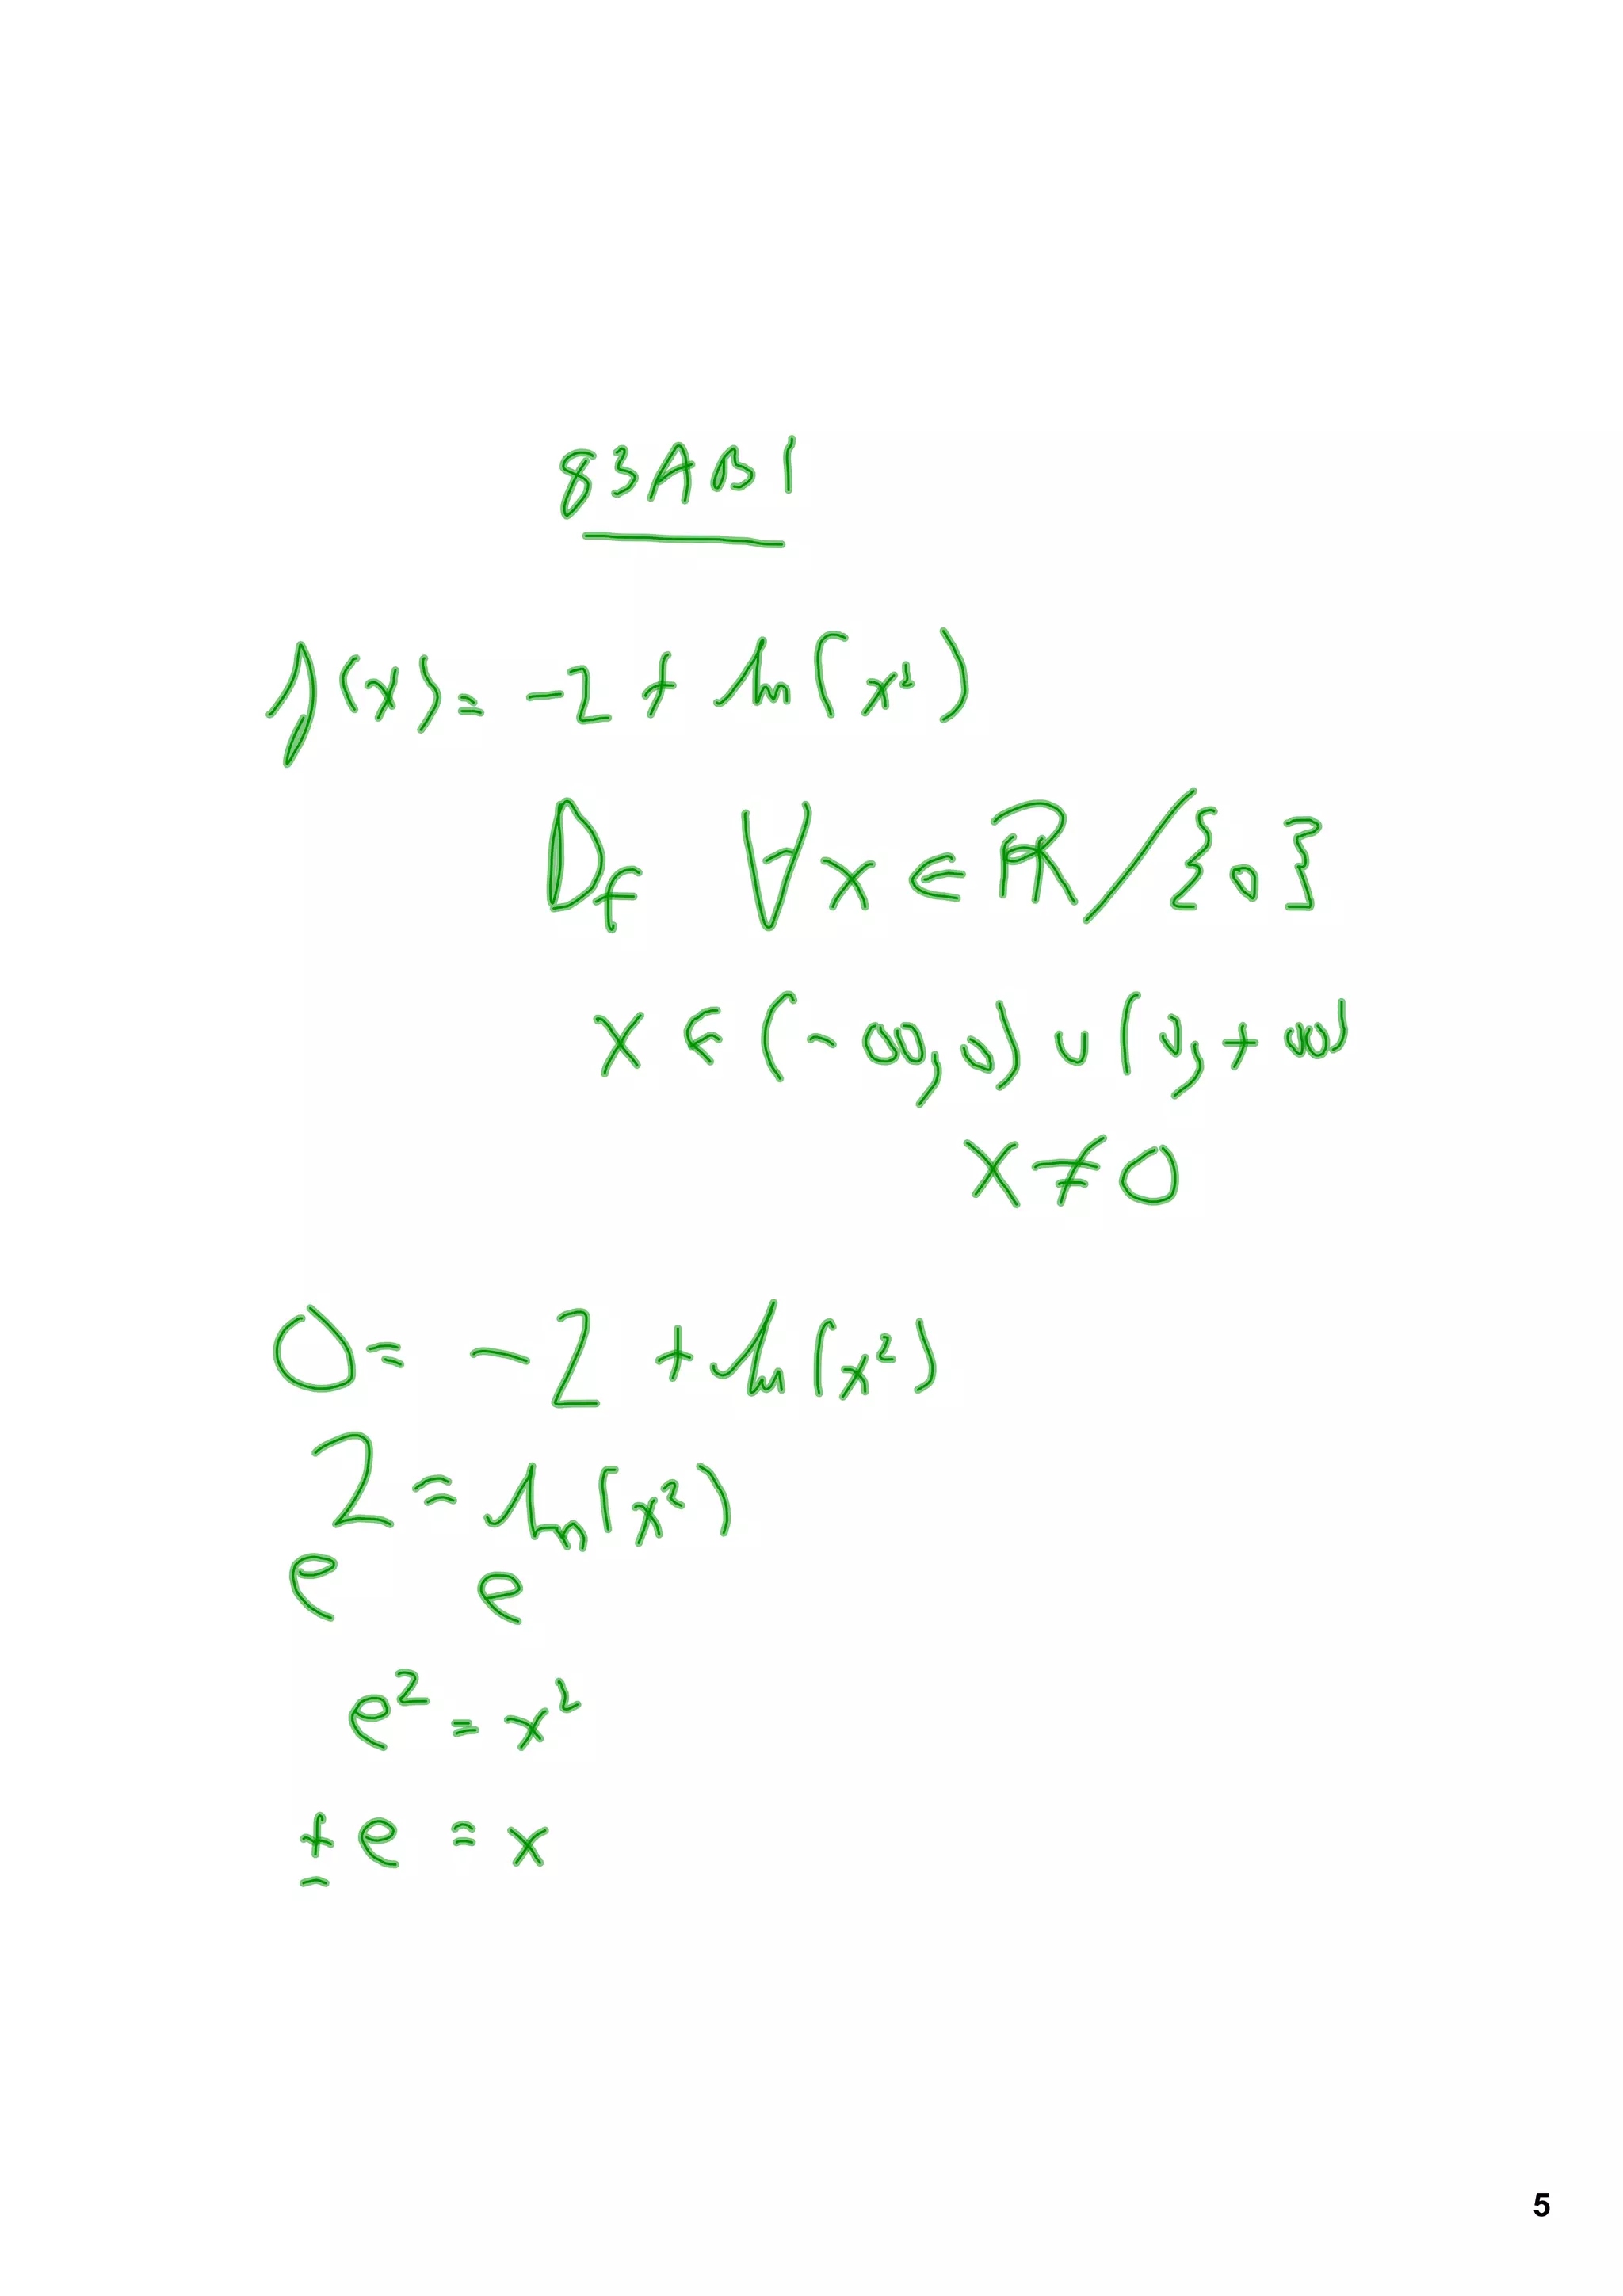 83AB1
f(x) = -2 + ln(x²)
Df ∀x ∈ ℝ/{0}
x ∈ (-∞, 0) ∪ (0, +∞)
x ≠ 0
0 = -2 + ln(x²)
2 = ln(x²)
e e
e² = x²
± e = x
5